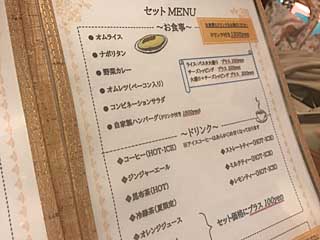 セットMENU
〜お食事〜
●オムライス
●ナポリタン
●野菜カレー
●オムレツ(ベーコン入り)
●コンビネーションサラダ
●自家製ハンバーグ(ドリンク付き
ライス・パスタ大盛り プラス
チーズトッピング プラス
大盛り+チーズトッピング プラス
〜ドリンク〜
●コーヒー(HOT・ICE)
●ジンジャーエール
●昆布茶(HOT)
●冷緑茶(夏限定)
●オレンジジュース
●ストレートティー(HOT・ICE)
●ミルクティー(HOT・ICE)
●レモンティー(HOT・ICE)
セット価格にプラス100yen